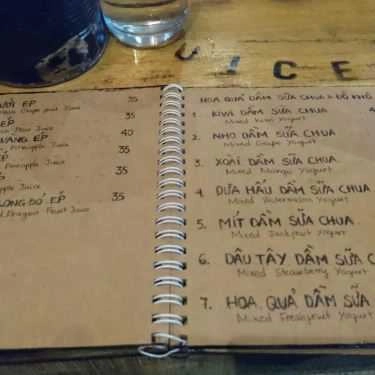 JICE
ƯỞI ÉP 35
Grape fruit Juice
ÉP 35
Juice
VÀNG ÉP 40
Pineapple Juice
ÉP 35
Pineapple Juice
ÉP 35
Apple Juice
LONG ĐỎ ÉP 35
Red Dragon Fruit Juice
HOA QUẢ DẦM SỮA CHUA & ĐỒ KHÔ
1. KIWI DẦM SỮA CHUA 4
Mixed Kiwi Yogurt
2. NHO DẦM SỮA CHUA
Mixed Grape Yogurt
3. XOÀI DẦM SỮA CHUA
Mixed Mango Yogurt
4. DƯA HẤU DẦM SỮA CHUA
Mixed Watermelon Yogurt
5. MÍT DẦM SỮA CHUA
Mixed Jackfruit Yogurt
6. DÂU TÂY DẦM SỮA C
Mixed Strawberry Yogurt
7. HOA QUẢ DẦM SỮA
Mixed Freshfruit Yogurt